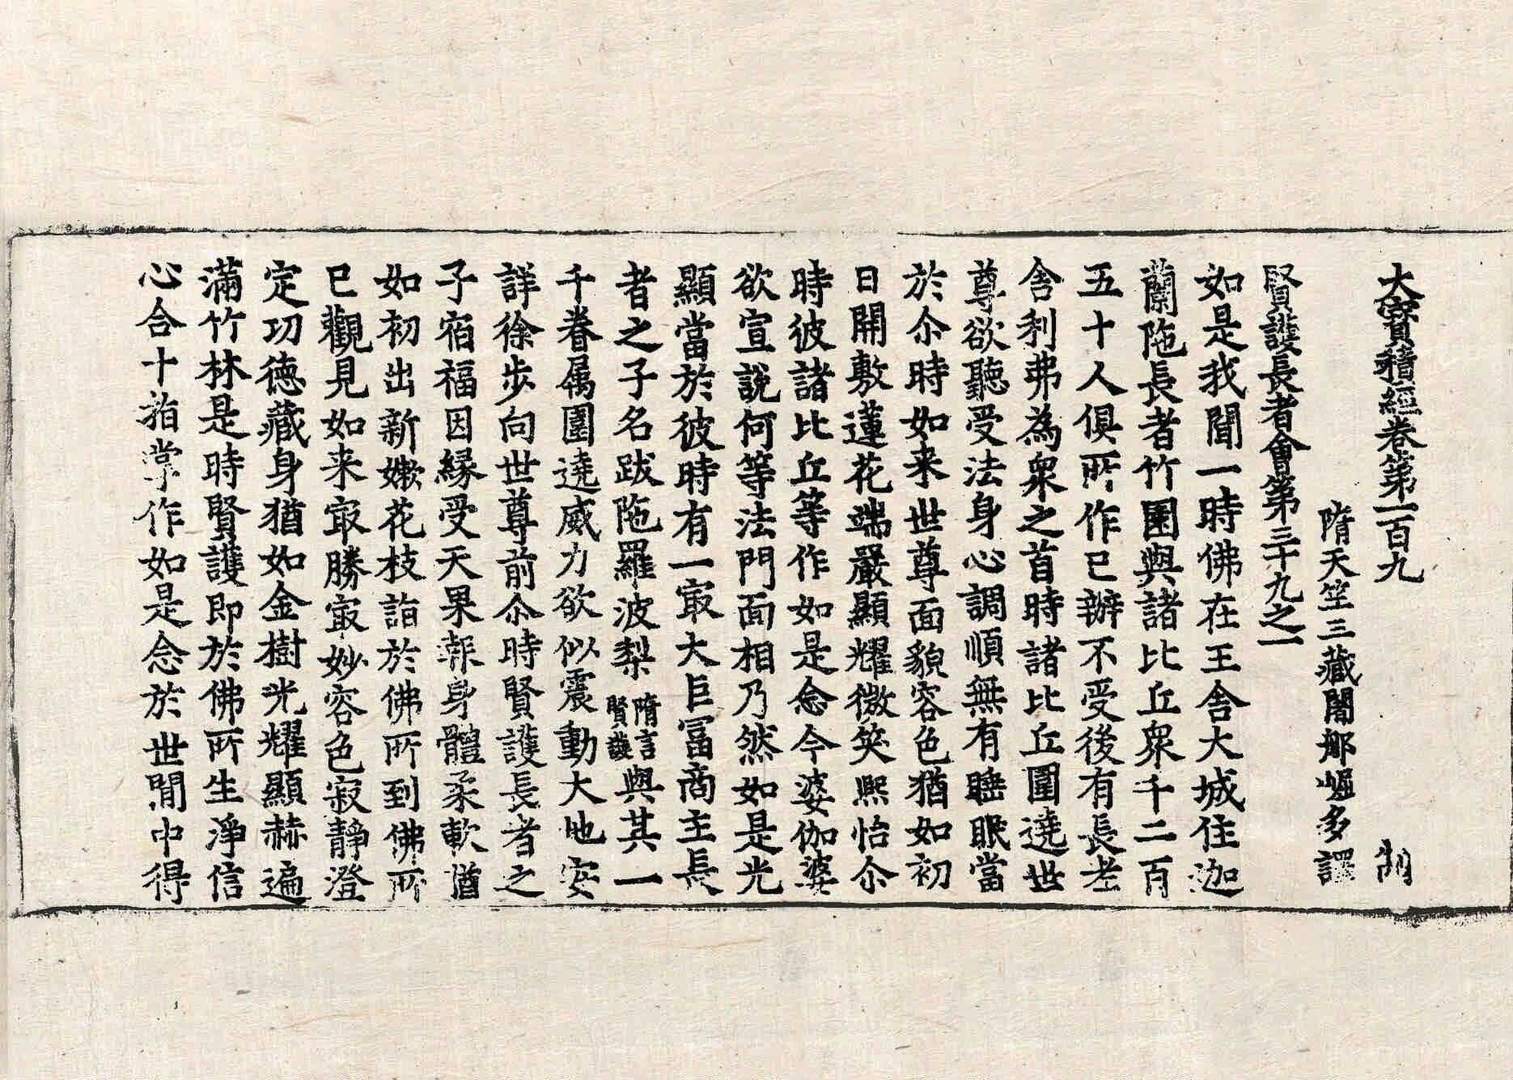 大寶積經卷第一百九 制
隋天竺三藏闍那崛多譯
賢護長者會第三十九之一
如是我聞一時佛在王舍大城住迦
蘭陁長者竹園與諸比丘衆千二百
五十人俱所作已辦不受後有長老
舍利弗為衆之首時諸比丘圍遶世
尊欲聽受法身心調順無有睡眠當
於尒時如来世尊面貌容色猶如初
日開敷蓮花端嚴顯耀微笑熙怡尒
時彼諸比丘等作如是念今婆伽婆
欲宣說何等法門面相乃然如是光
顯當於彼時有一㝡大巨冨商主長
者之子名跋陁羅波梨隋言賢護與其一
千眷属圍遶威力欲似震動大地安
詳徐步向世尊前尒時賢護長者之
子宿福因縁受天果報身體柔軟猶
如初出新嫰花枝詣於佛所到佛所
已觀見如来㝡勝㝡妙容色寂靜澄
定功德藏身猶如金樹光耀顯赫遍
滿竹林是時賢護即於佛所生淨信
心合十指掌作如是念於世間中得